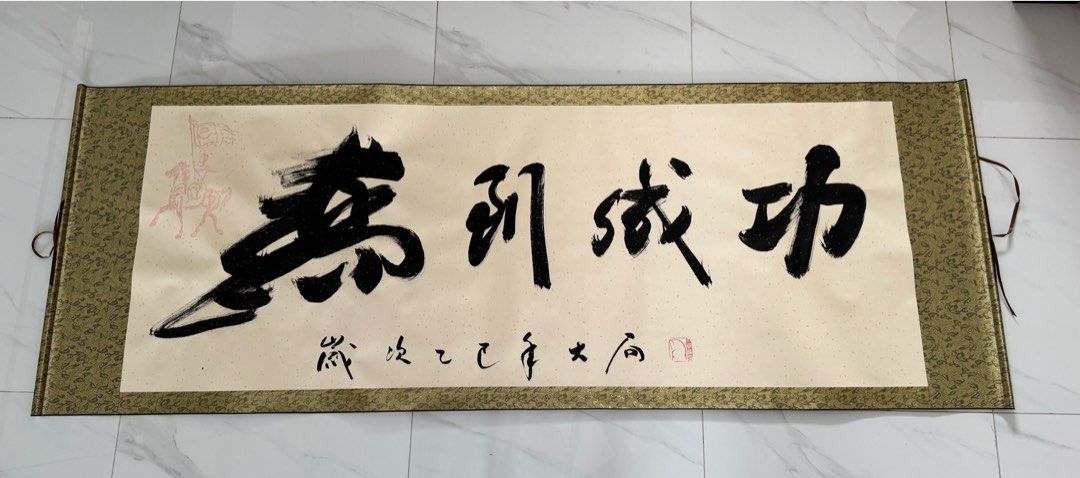 馬到成功
歲次乙巳年大